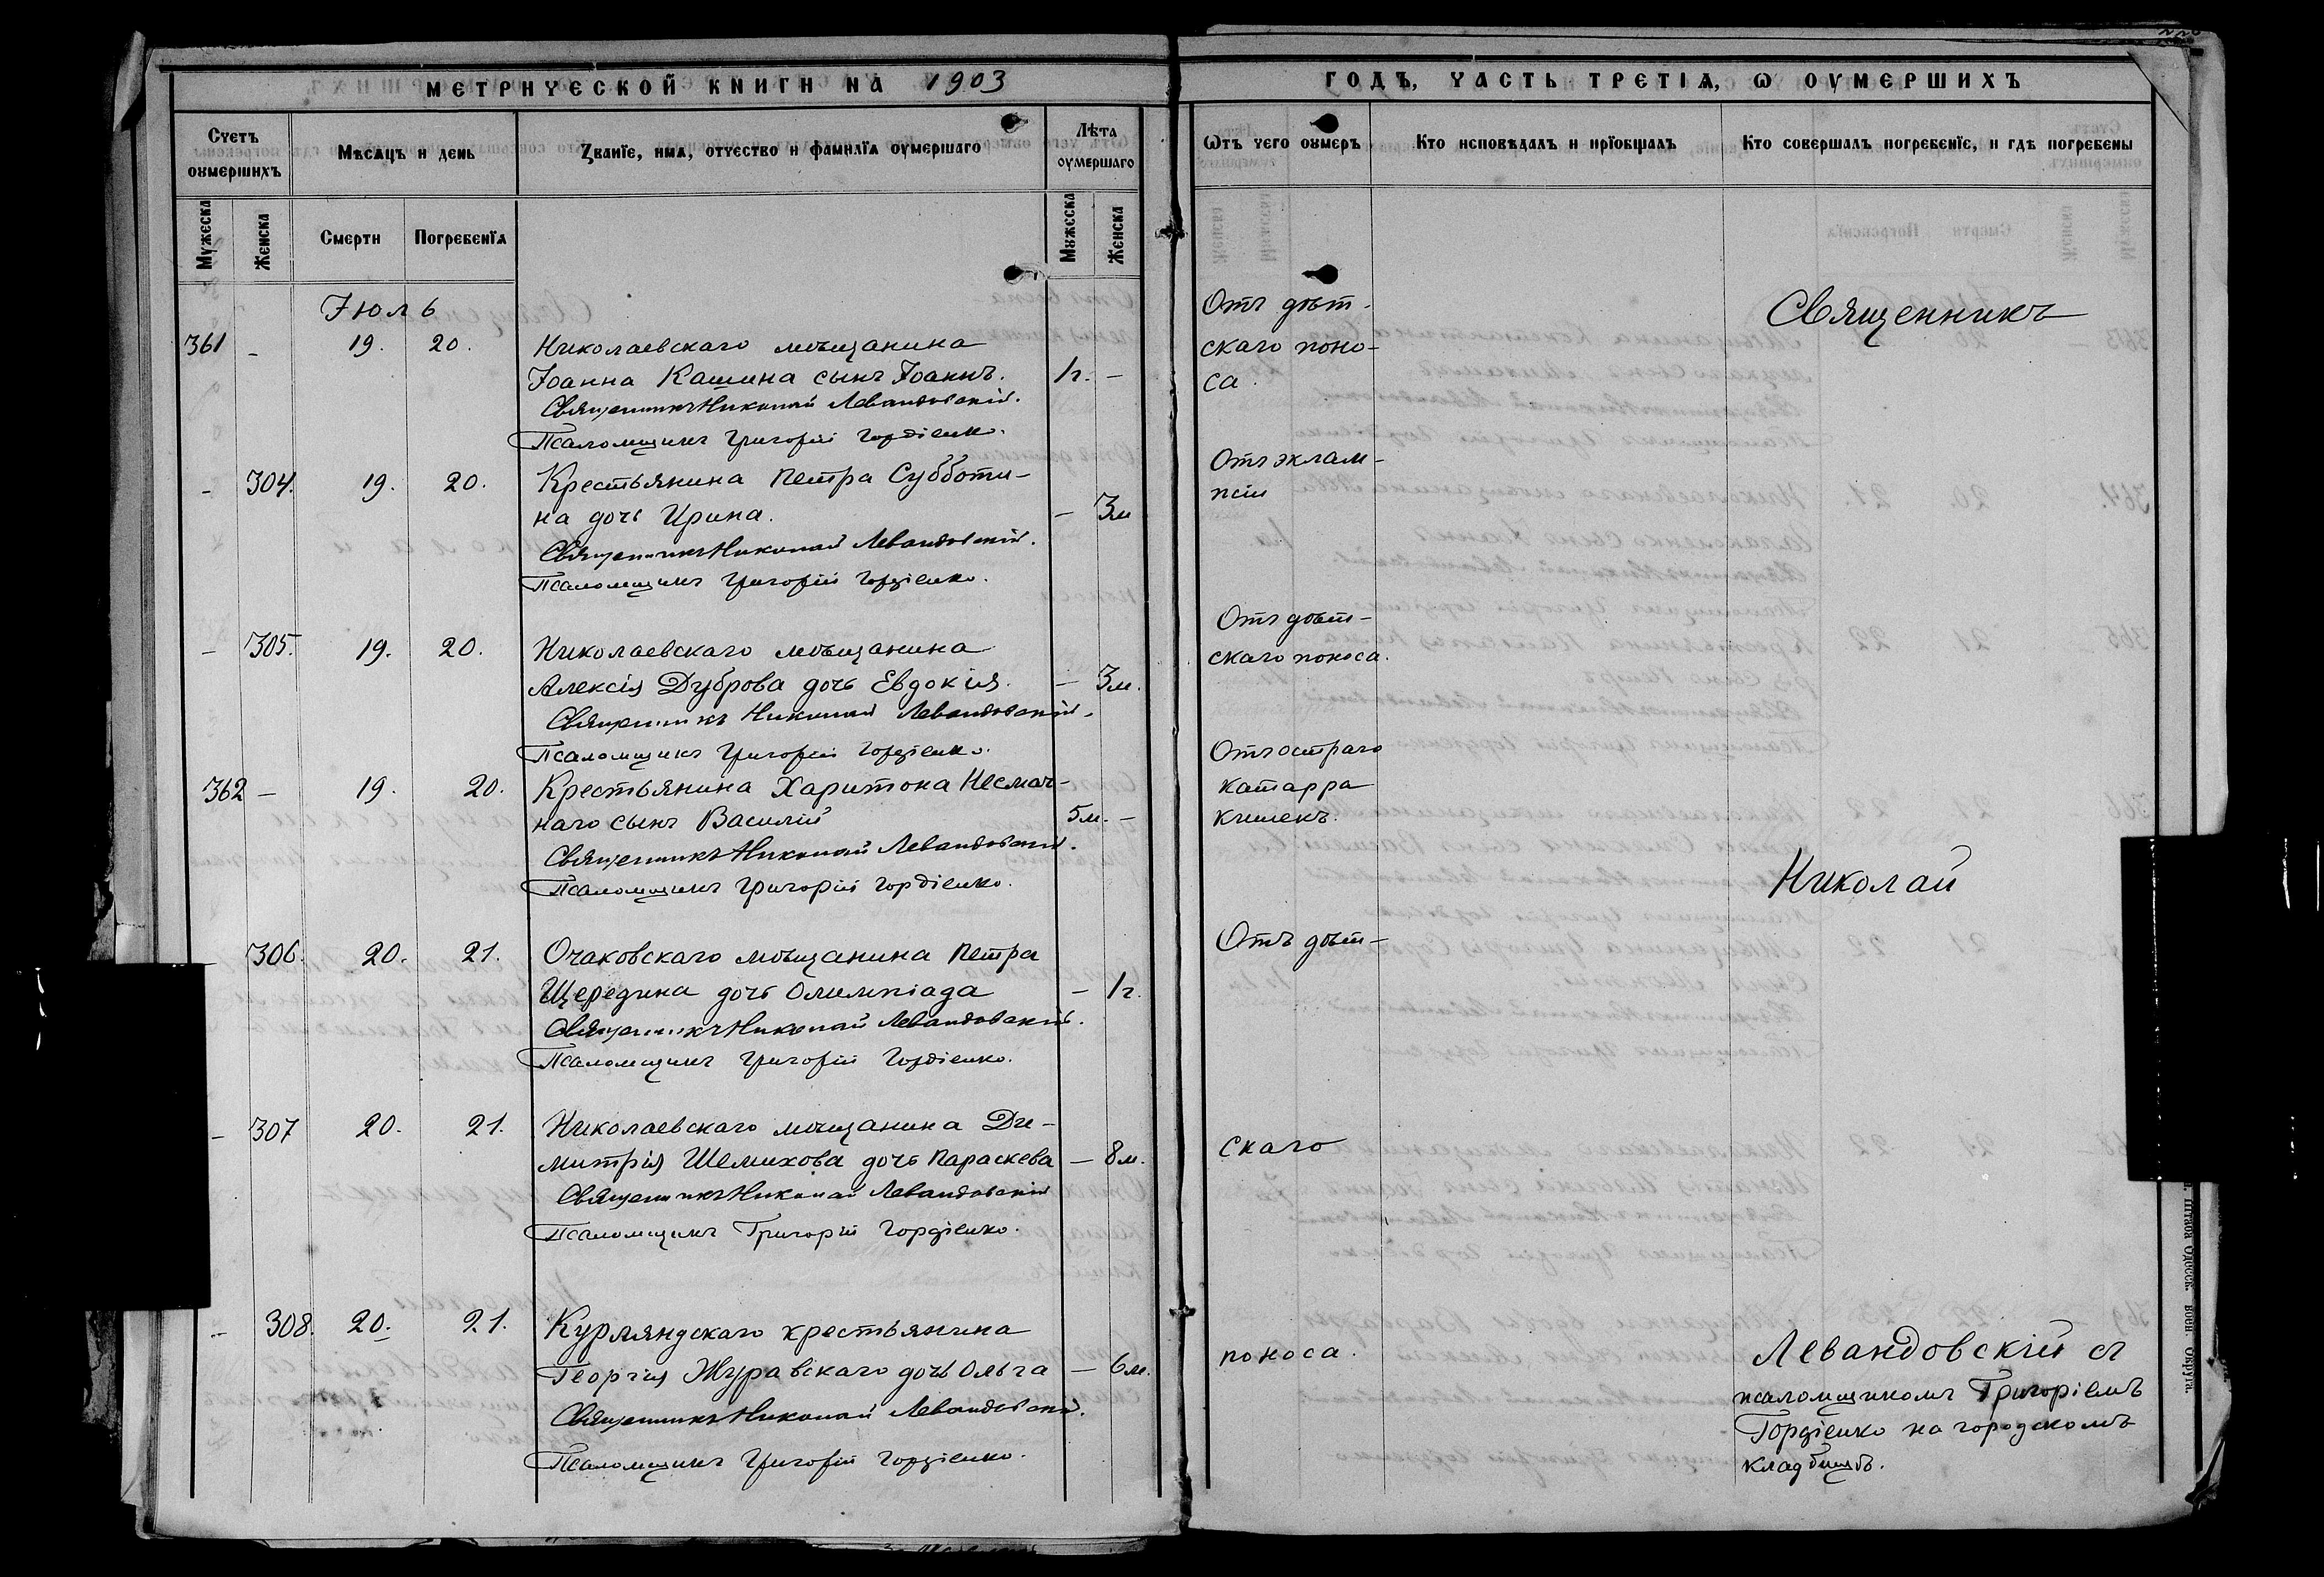 МЕТРИЧЕСКОЙ КНИГИ НА 1903
Счетъ оумершихъ
Мѣсяцъ и день
Званїе, имя, отчество и фамилїя оумершаго
Лѣта оумершаго
Мужеска
Женска
Смерти
Погребенїя
Мужеска
Женска
Іюль
361 - 19. 20. Николаевскаго мѣщанина
Іоанна Кашина сынъ Іоаннъ. 1г. -
Священникъ Николай Левандовскій.
Псаломщикъ Григорій Гордіенко.
- 304. 19. 20. Крестьянина Петра Субботи-
на дочь Ирина. - 3м
Священникъ Николай Левандовскій.
Псаломщикъ Григорій Гордіенко.
- 305. 19. 20. Николаевскаго мѣщанина
Алексія Дуброва дочь Евдокія. - 3м.
Священникъ Николай Левандовскій.
Псаломщикъ Григорій Гордіенко.
362 - 19. 20. Крестьянина Харитона Несмач-
наго сынъ Василій 5м. -
Священникъ Николай Левандовскій.
Псаломщикъ Григорій Гордіенко.
306. 20. 21. Очаковскаго мѣщанина Петра
Щередина дочь Олимпіада - 1г.
Священникъ Николай Левандовскій.
Псаломщикъ Григорій Гордіенко.
- 307 20. 21. Николаевскаго мѣщанина Ди-
митрія Шемихова дочь Параскева - 8м.
Священникъ Николай Левандовскій
Псаломщикъ Григорій Гордіенко.
- 308. 20. 21. Курляндскаго крестьянина
Георгія Журавскаго дочь Ольга - 6м.
Священникъ Николай Левандовскій.
Псаломщикъ Григорій Гордіенко.
ГОДЪ, ЧАСТЬ ТРЕТІЯ, Ѡ ОУМЕРШИХЪ
Ѿтъ чего оумеръ
Кто исповѣдалъ и прїобщалъ
Кто совершалъ погребенїе, и гдѣ погребены
Отъ дѣт-
скаго поно-
са.
Отъ эклам-
псіи
Отъ дѣт-
скаго поноса.
Отъ остраго
катарра
кишекъ.
Отъ дѣт-
скаго
поноса.
Священникъ
Николай
Левандовскій съ
псаломщикомъ Григоріемъ
Гордіенко на городскомъ
кладбищѣ.
Одесск. воен. Округа.